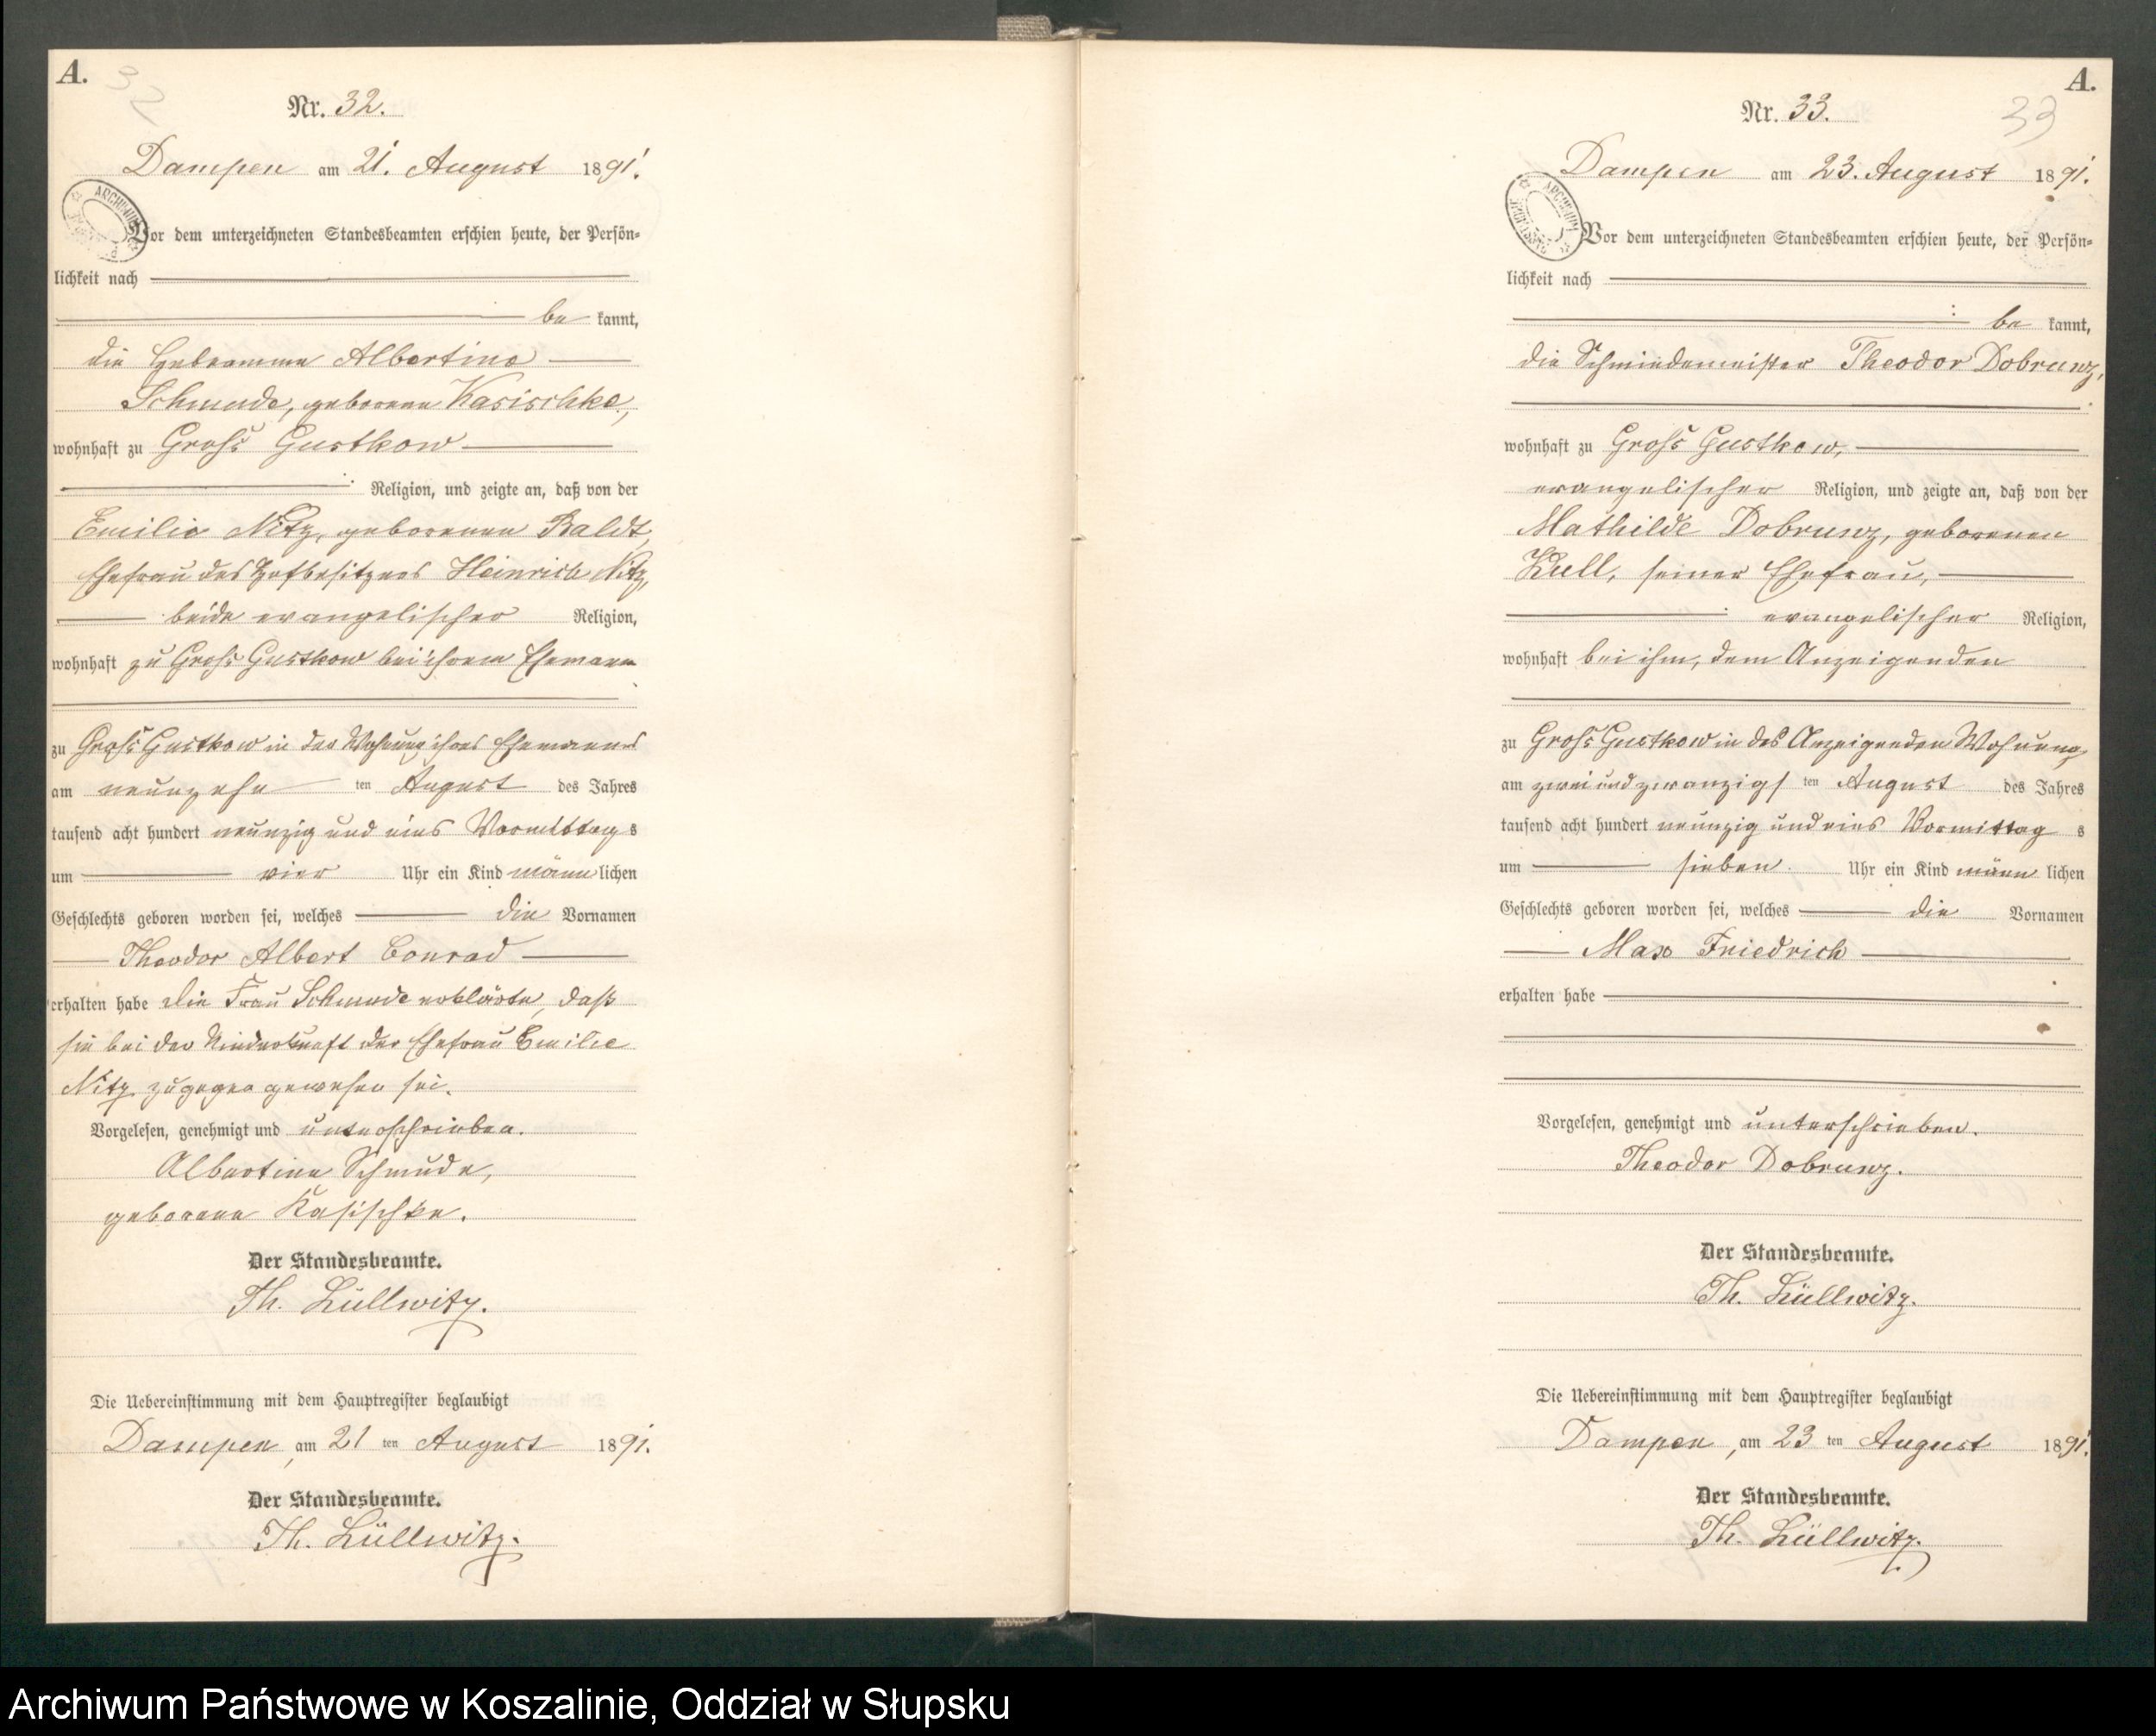 A.
32
Nr. 32.
Dampen am 21. August 1891.
Vor dem unterzeichneten Standesbeamten erschien heute, der Persön-
lichkeit nach
be kannt,
die Hebamme Albertine
Schmude, geborene Kasischke,
wohnhaft zu Groß Gustkow
Religion, und zeigte an, daß von der
Emilie Nitz, geborenen Baldt,
Ehefrau des Hofbesitzers Heinrich Nitz,
beide evangelischer Religion,
wohnhaft zu Groß Gustkow bei ihrem Ehemann
zu Groß Gustkow in der Wohnung ihres Ehemannes
am neunzehn ten August des Jahres
tausend acht hundert neunzig und eins Vormittag s
um vier Uhr ein Kind männ lichen
Geschlechts geboren worden sei, welches die Vornamen
Theodor Albert Conrad
erhalten habe Die Frau Schmude erklärte, daß
sie bei der Niederkunft der Ehefrau Emilie
Nitz zugegen gewesen sei.
Vorgelesen, genehmigt und unterschrieben.
Albertine Schmude,
geborene Kasischke.
Der Standesbeamte.
Th. Lüllwitz.
Die Uebereinstimmung mit dem Hauptregister beglaubigt
Dampen, am 21 ten August 1891.
Der Standesbeamte.
Th. Lüllwitz.
A.
33
Nr. 33.
Dampen am 23. August 1891.
Vor dem unterzeichneten Standesbeamten erschien heute, der Persön-
lichkeit nach
be kannt,
die Schmiedemeister Theodor Dobrunz,
wohnhaft zu Groß Gustkow,
evangelischer Religion, und zeigte an, daß von der
Mathilde Dobrunz, geborenen
Kull, seiner Ehefrau,
evangelischer Religion,
wohnhaft bei ihm, dem Anzeigenden
zu Groß Gustkow in des Anzeigenden Wohnung,
am zwei und zwanzigs ten August des Jahres
tausend acht hundert neunzig und eins Vormittag s
um sieben Uhr ein Kind männ lichen
Geschlechts geboren worden sei, welches die Vornamen
Max Friedrich
erhalten habe
Vorgelesen, genehmigt und unterschrieben.
Theodor Dobrunz.
Der Standesbeamte.
Th. Lüllwitz.
Die Uebereinstimmung mit dem Hauptregister beglaubigt
Dampen, am 23 ten August 1891.
Der Standesbeamte.
Th. Lüllwitz.
Archiwum Państwowe w Koszalinie, Oddział w Słupsku